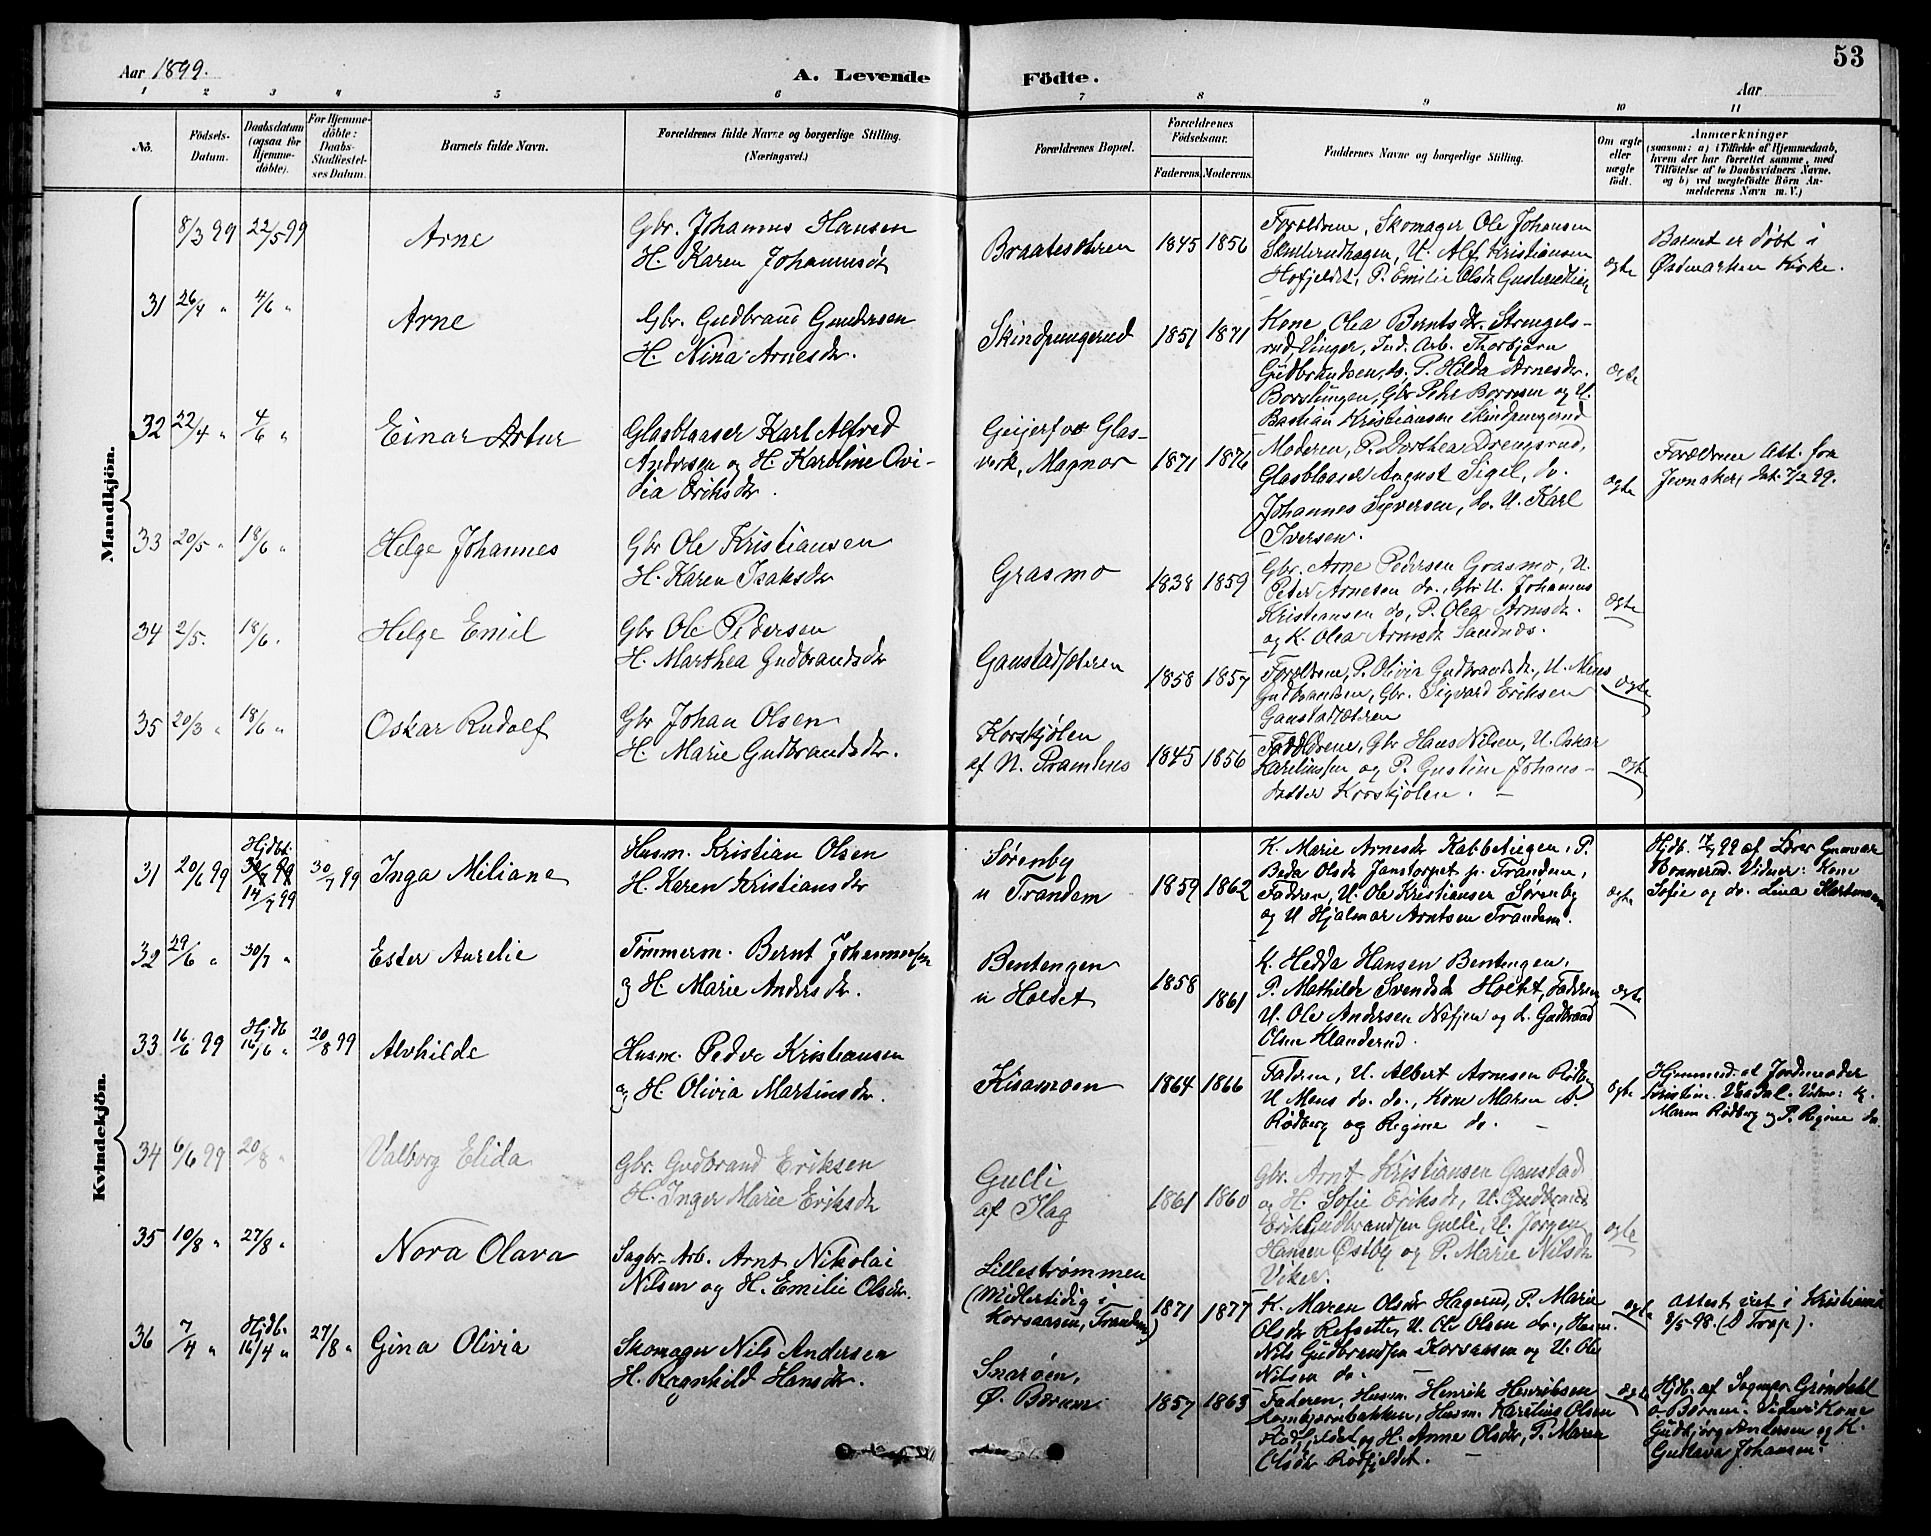 53
Aar 1899.
A. Levende Födte.
Aar
1 2 3 4 5 6 7 8 9 10 11
No.
Födsels-
Datum.
Daabsdatum
(ogsaa for
Hjemme-
döbte).
For Hjemme-
döbte:
Daabs-
Stadfæstel-
ses Datum.
Barnets fulde Navn.
Forældrenes fulde Navne og borgerlige Stilling.
(Næringsvei.)
Forældrenes Bopæl.
Forældrenes
Födselsaar.
Faderens. Moderens.
Faddernes Navne og borgerlige Stilling.
Om ægte
eller
uægte
født.
Anmærkninger
(saasom: a) i Tilfælde af Hjemmedaab,
hvem der har forrettet samme, med
Tilföielse af to Daabsvidners Navne.
og b) ved uægtefödte Börn An-
melderens Navn m. V.)
Mandkjön.
8/3 99 22/5 99
Arne
Gbr. Johannes Hansen
H. Karen Johannesdt
Braatesæteren
1845 1856
Forældrene, Skomager Ole Johansen
Skulerudhagen, U. Alf Kristiansen
Hofjeldet, P. Emilie Olsdr
ægte
Barnet er døbt i
Østmarken Kirke.
31 26/4 " 4/6 "
Arne
Gbr. Gudbrand Gundersen
H. Nina Arnesdr.
Skindpungerud
1851 1871
Kone Olea Berntsdr. Strengels-
rud, Vinger, Ind. Arb. Thorbjørn
Gudbrandsen, do. P. Hilda Arnesdr.
Gbr og U.
Bastian Kristiansen Skindpungerud
ægte
32 22/4 " 4/6 "
Einar Artur
Glasblaaser Karl Alfred
Andersen og H. Karoline Ovi-
dia Eriksdr.
Geijerfos Glas-
verk, Magnor
1871 1876
Moderen, P. Dorthea Drengsrud,
Glasblaaser August Sigel, do.
Johannes Syversen, do. U. Karl
Iversen.
ægte
Forældrene Att. fra
Jevnaker, dat. 7/2 99.
33 20/5 " 18/6 "
Helge Johannes
Gbr Ole Kristiansen
H. Karen Isaksdr
Grasmo
1838 1859
Gbr. Arne Pedersen Grasmo, U.
Peter Arnesen do., Gbr U. Johannes
Kristiansen do, P. Olea Arnesdr.
og K. Olea Arnesdr Sandnæs.
ægte
34 2/5. 18/6.
Helge Emil
Gbr Ole Pedersen
H. Marthea Gudbrandsdr
Gaustadsæteren
1858 1857
Forældrene, P. Olivia Gudbrandsdr., U. Nils
Gudbrandsen, Gbr. Sigvard Eriksen
Gaustadsæteren
ægte
35 20/3 " 18/6 "
Oskar Rudolf
Gbr Johan Olsen
H. Marie Gudbrandsdr.
Korskjølen
af N.
1845 1856
Forældrene, Gbr Hans Nilsen, U. Oskar
Kareliussen og P. Gustine Johans-
datter Korskjølen. —
ægte
Kvindekjön.
31 20/6 99
Hjdbt.
30/7 99
14/7 99
30/7 99
Inga Miliane
Husm. Kristian Olsen
H. Karen Kristiansdr
Sørenby
u Trandem
1859 1862
K. Marie Arnesdr , P.
Beda Olsdr Janstorpet p. Trandem,
Faderen, U. Ole Kristiansen Sørenby
og U Hjalmar Arntsen Trandem.
ægte
Hjdb. 14/7 99 af Lærer Gunnar
Bonnerud. Vidner: Kone
Sofie og do. Lina Hartmann
32 29/6 " 30/7 "
Ester Aurelie
Tømmerm. Bernt Johannessen
og H. Marie Andersdr.
Bentengen
u Holtet
1858 1861
K. Hedda Hansen Bentengen,
P. Mathilde Svendsdr Holtet, Faderen
U. Ole Andersen og do. Gudbrand
Olsen Klanderud.
ægte
33 16/6 99
Hjdb
16/6 "
20/8 99
Alvhilde
Husm. Peder Kristiansen
og H. Olivia Martinsdr.
Kisamoen
1864 1866
Faderen, U. Albert Arnesen Rødberg
U Mons do. do., Kone Maren A.
Rødberg og Regine do. —
ægte
Hjemmed. af Jordmoder
Kristine Vaadal. Vidner: K.
Maren Rødberg og P. Regine do
34 6/6 99 20/8 "
Valborg Elida
Gbr. Gudbrand Eriksen
H. Inger Marie Eriksdr
Gulli
af Hag
1861 1860
Gbr. Arnt Kristiansen Gaustad
og H. Sofie Eriksdr, U. Gudbrand
Erik Gudbrandsen Gulli, U. Jørgen
Hansen Østby og P. Marie Nilsdr
Viker.
ægte
35 10/8 " 27/8 "
Nora Olava
Sagbr. Arb. Arnt Nikolai
Nilsen og H. Emilie Olsdr.
Lillestrømmen
(Midlertidig i
Korsaasen, Trandem)
1871 1877
K. Maren Olsdr Hagerud, P. Marie
Olsdr Refsette, U. Ole Olsen do., Husm.
Nils Gudbrandsen Korsaasen og U. Ole
Nilsen do. —
ægte
Attest viet i Kristiania
8/5 98.
36 7/4 "
Hjdb.
16/4 "
27/8 "
Gina Olivia
Skomager Nils Andersen
H. Ragnhild Hansdr.
Snarøen,
Ø. Bærum.
1857 1863
Faderen, Husm. Henrik Henriksen
Husm. Karelius Olsen
Rødfjeldet og H. Anne Olsdr, P. Maren
Olsdr Rødfjeldet.
ægte
Hjdb. af Sognepr. Grøndahl
i Bærum. Vidner: Kone
Gudbjørg Andersen og K.
Gustava Johansen.